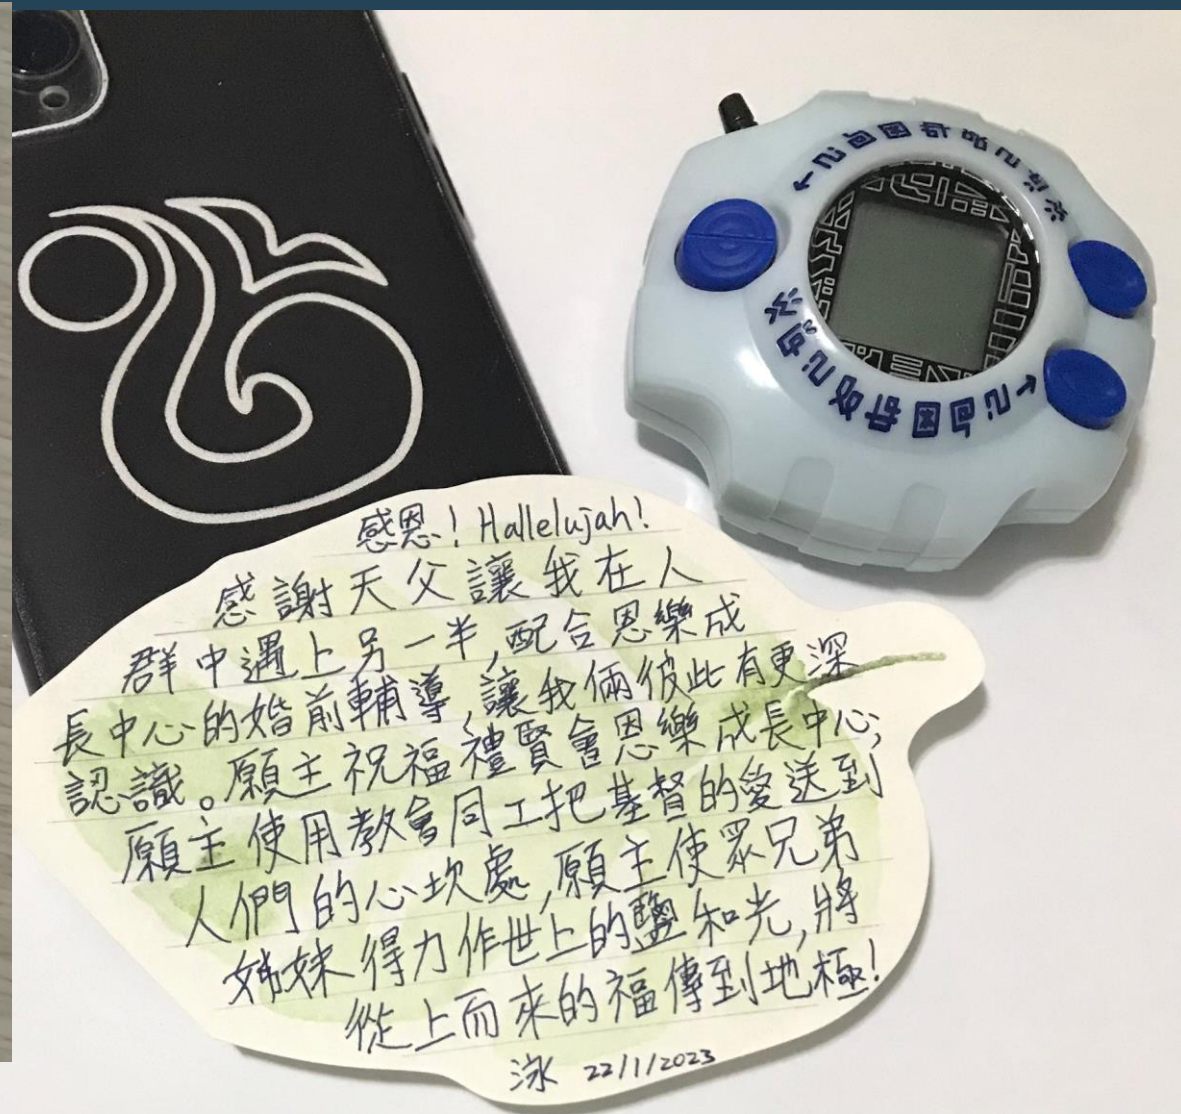 感恩！Hallelujah!
感謝天父讓我在人
群中遇上另一半，配合恩樂成
長中心的婚前輔導，讓我倆彼此有更深
認識。願主祝福禮賢會恩樂成長中心；
願主使用教會同工把基督的愛送到
人們的心坎處，願主使眾兄弟
姊妹得力作世上的鹽和光，將
從上而來的福傳到地極！
泳 22/1/2023